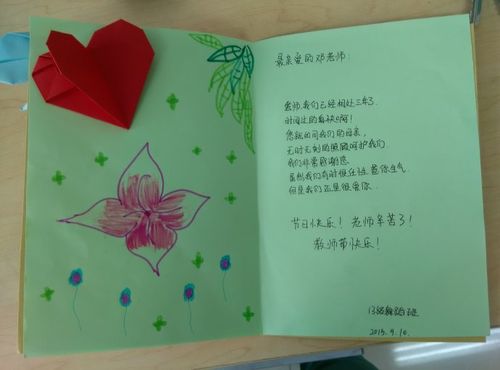 最亲爱的邓老师:
老师,我们已经相处三年了.
时间过的真快啊!
您就如同我们的母亲,
无时无刻的照顾呵护我们.
我们非常感谢您.
虽然我们有时候任性 惹你生气.
但是我们还是很爱你.
节日快乐! 老师辛苦了!
教师节快乐!
13级
2015.9.10.